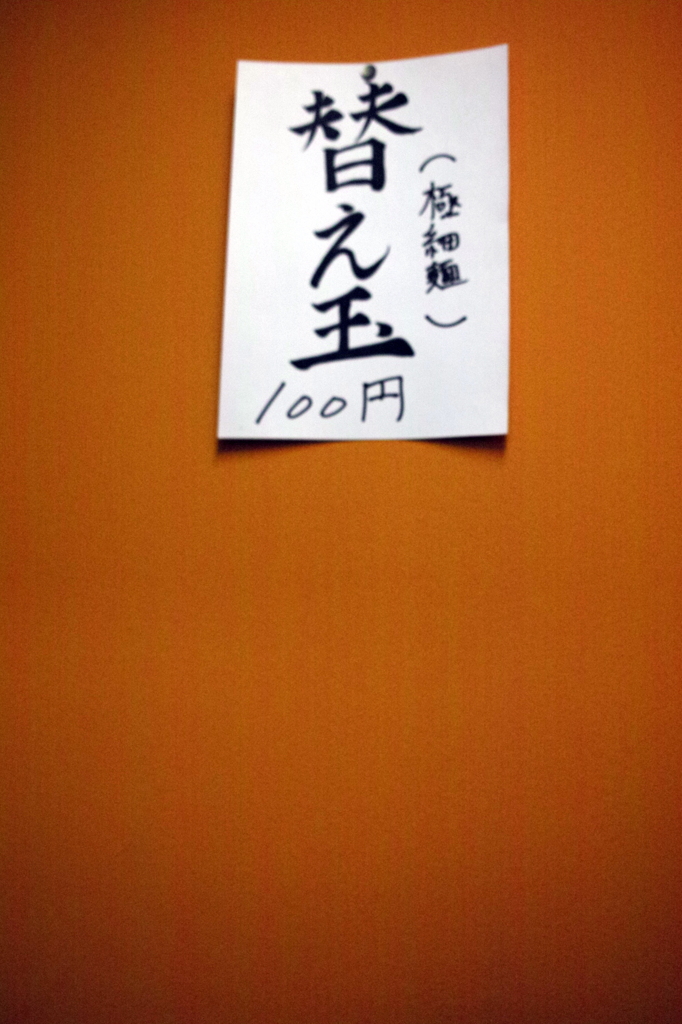 （極細麺）
替え玉
100円